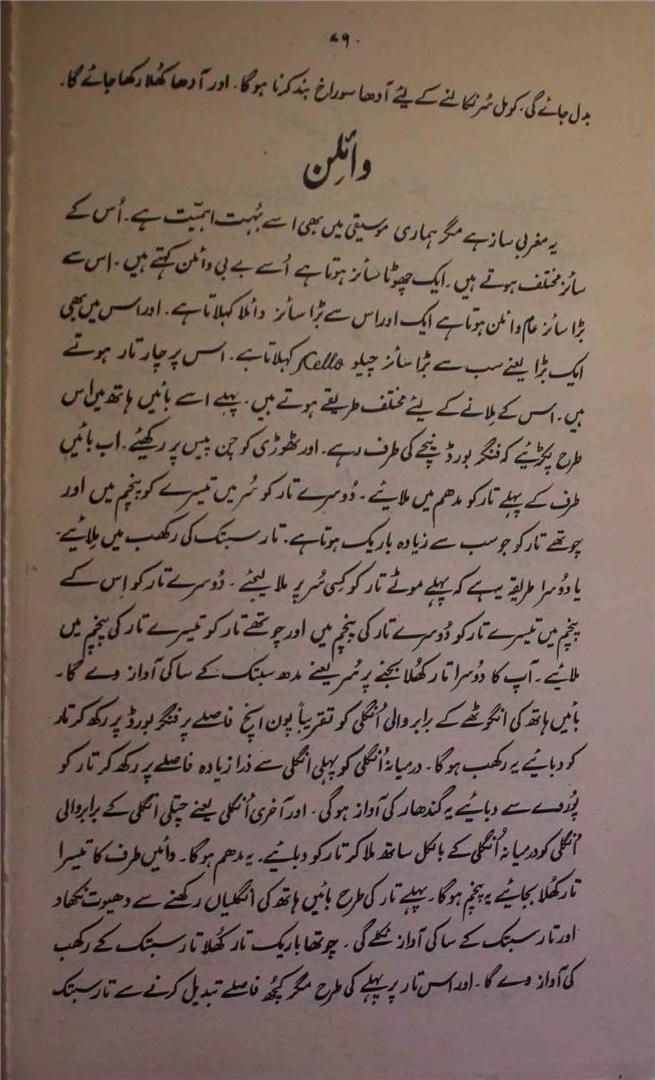 ۷۶
بدل جائے گی۔ کومل سُر نکالنے کے لیئے آدھا سوراخ بند کرنا ہوگا۔ اور آدھا کھُلا رکھا جائے گا۔
وائلن
یہ مغربی ساز ہے مگر ہماری موسیقی میں بھی اسے بہُت اہمیّت ہے۔ اُس کے
سائز مختلف ہوتے ہیں۔ ایک چھوٹا سائز ہوتا ہے اُسے بے بی وائلن کہتے ہیں۔ اِس سے
بڑا سائز عام وائلن ہوتا ہے ایک اور اس سے بڑا سائز وائلا کہلاتا ہے۔ اور اس میں بھی
ایک بڑا یعنے سب سے بڑا سائز چیلو Kello کہلاتا ہے۔ اس پر چار تار ہوتے
ہیں۔ اس کے مِلانے کے لیئے مختلف طریقے ہوتے ہیں۔ پہلے اسے بائیں ہاتھ میں اس
طرح پکڑیئے کہ فنگر بورڈ نیچے کی طرف رہے۔ اور ٹھوڑی کو چِن پیس پر رکھیئے۔ اب بائیں
طرف کے پہلے تار کو مدھم میں ملائیے۔ دُوسرے تار کو سُر میں تیسرے کو پنچم میں اور
چوتھے تار کو جو سب سے زیادہ باریک ہوتا ہے۔ تار سبتک کی رکھب میں مِلائیے۔
یا دُوسرا طریقہ یہ ہے کہ پہلے موٹے تار کو کِسی سُر پر ملا لیجئے۔ دُوسرے تار کو اِس کے
پنچم میں تیسرے تار کو دُوسرے تار کی پنچم میں اور چوتھے تار کو تیسرے تار کی پنچم میں
ملائیے۔ آپ کا دُوسرا تار کھلا بجنے پر سُر یعنے مدھ سبتک کے سا کی آواز دے گا۔
بائیں ہاتھ کی انگوٹھے کے برابر والی اُنگلی کو تقریباً پون اِنچ فاصلے پر فنگر بورڈ پر رکھ کر تار
کو دبائیے یہ رکھب ہوگا۔ درمیانہ اُنگلی کو پہلی انگلی سے ذرا زیادہ فاصلے پر رکھ کر تار کو
پوُروے سے دبائیے یہ گندھار کی آواز ہوگی۔ اور آخری اُنگلی یعنے چتلی انگلی کے برابر والی
اُنگلی کو درمیانہ اُنگلی کے بالکل ساتھ ملا کر تار کو دبائیے۔ یہ مدھم ہوگا۔ دائیں طرف کا تیسرا
تار کھُلا بجائیے یہ پنچم ہوگا۔ پہلے تار کی طرح بائیں ہاتھ کی اُنگلیاں رکھنے سے دھیوت نکھاد
اور تار سبتک کے سا کی آواز نکلے گی۔ چوتھا باریک تار کھُلا تار سبتک کے رکھب
کی آواز دے گا۔ اور اس تار پر پہلے کی طرح مگر کچھُ فاصلے تبدیل کرنے سے تار سبتک